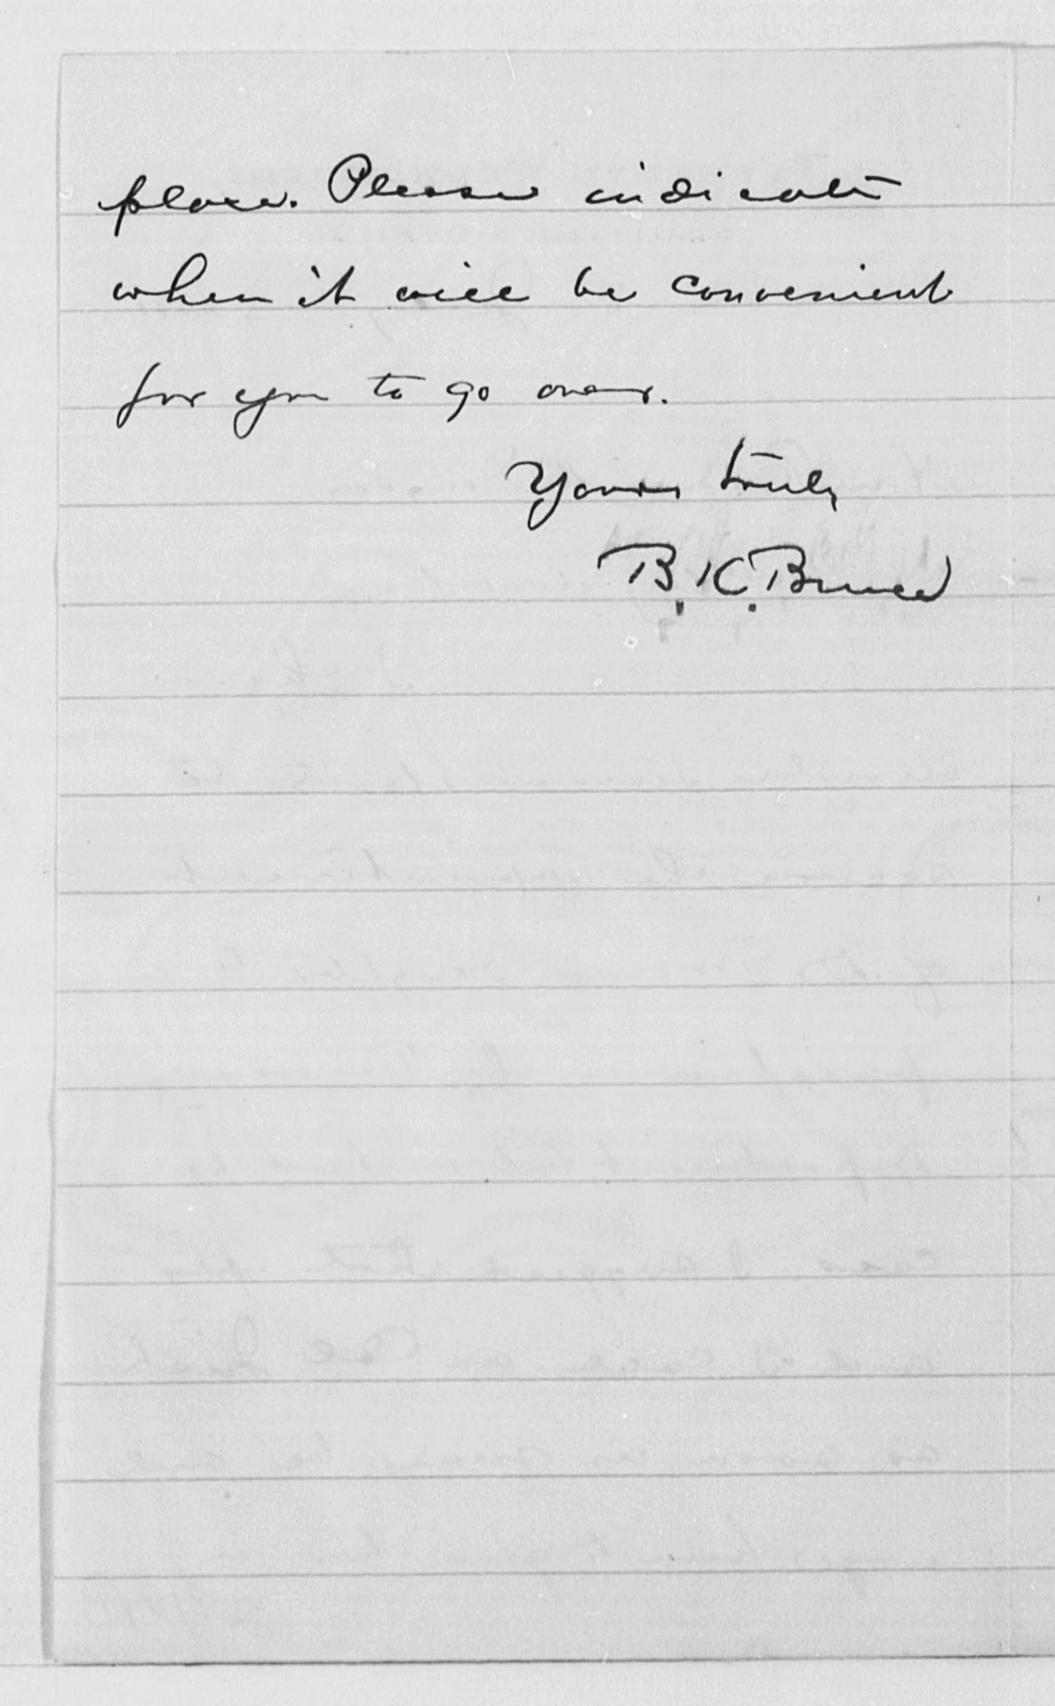 place. Please indicate
when it will be convenient
for you to go over.
Yours truly
B. K. Bruce